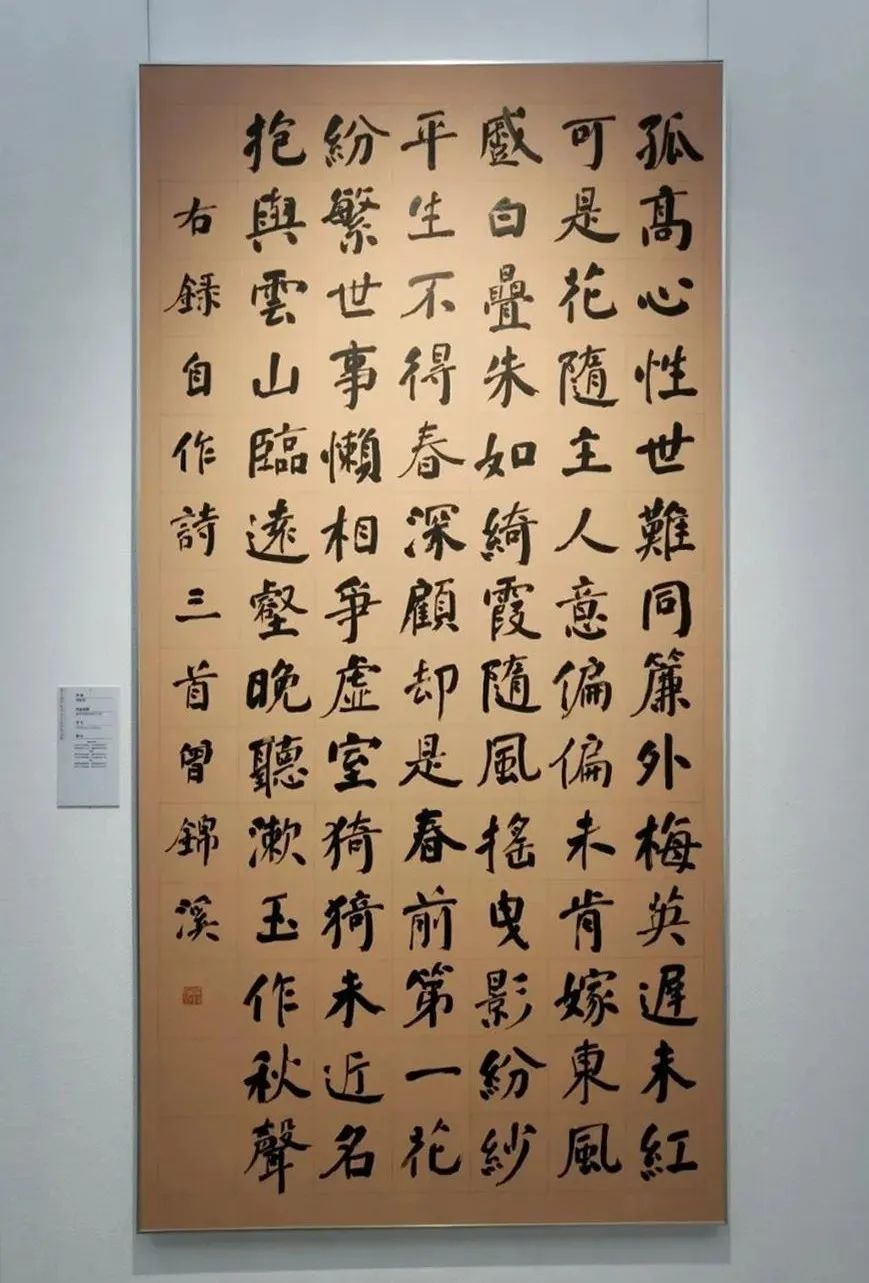 孤高心性世難同簾外梅英遲未紅
可是花隨主人意偏偏未肯嫁東風
蹙白疊朱如綺霞隨風搖曳影紛紗
平生不得春深顧却是春前第一花
紛繁世事懶相爭虛室猗猗未近名
抱與雲山臨遠壑晚聽漱玉作秋聲
右録自作詩三首曾錦溪